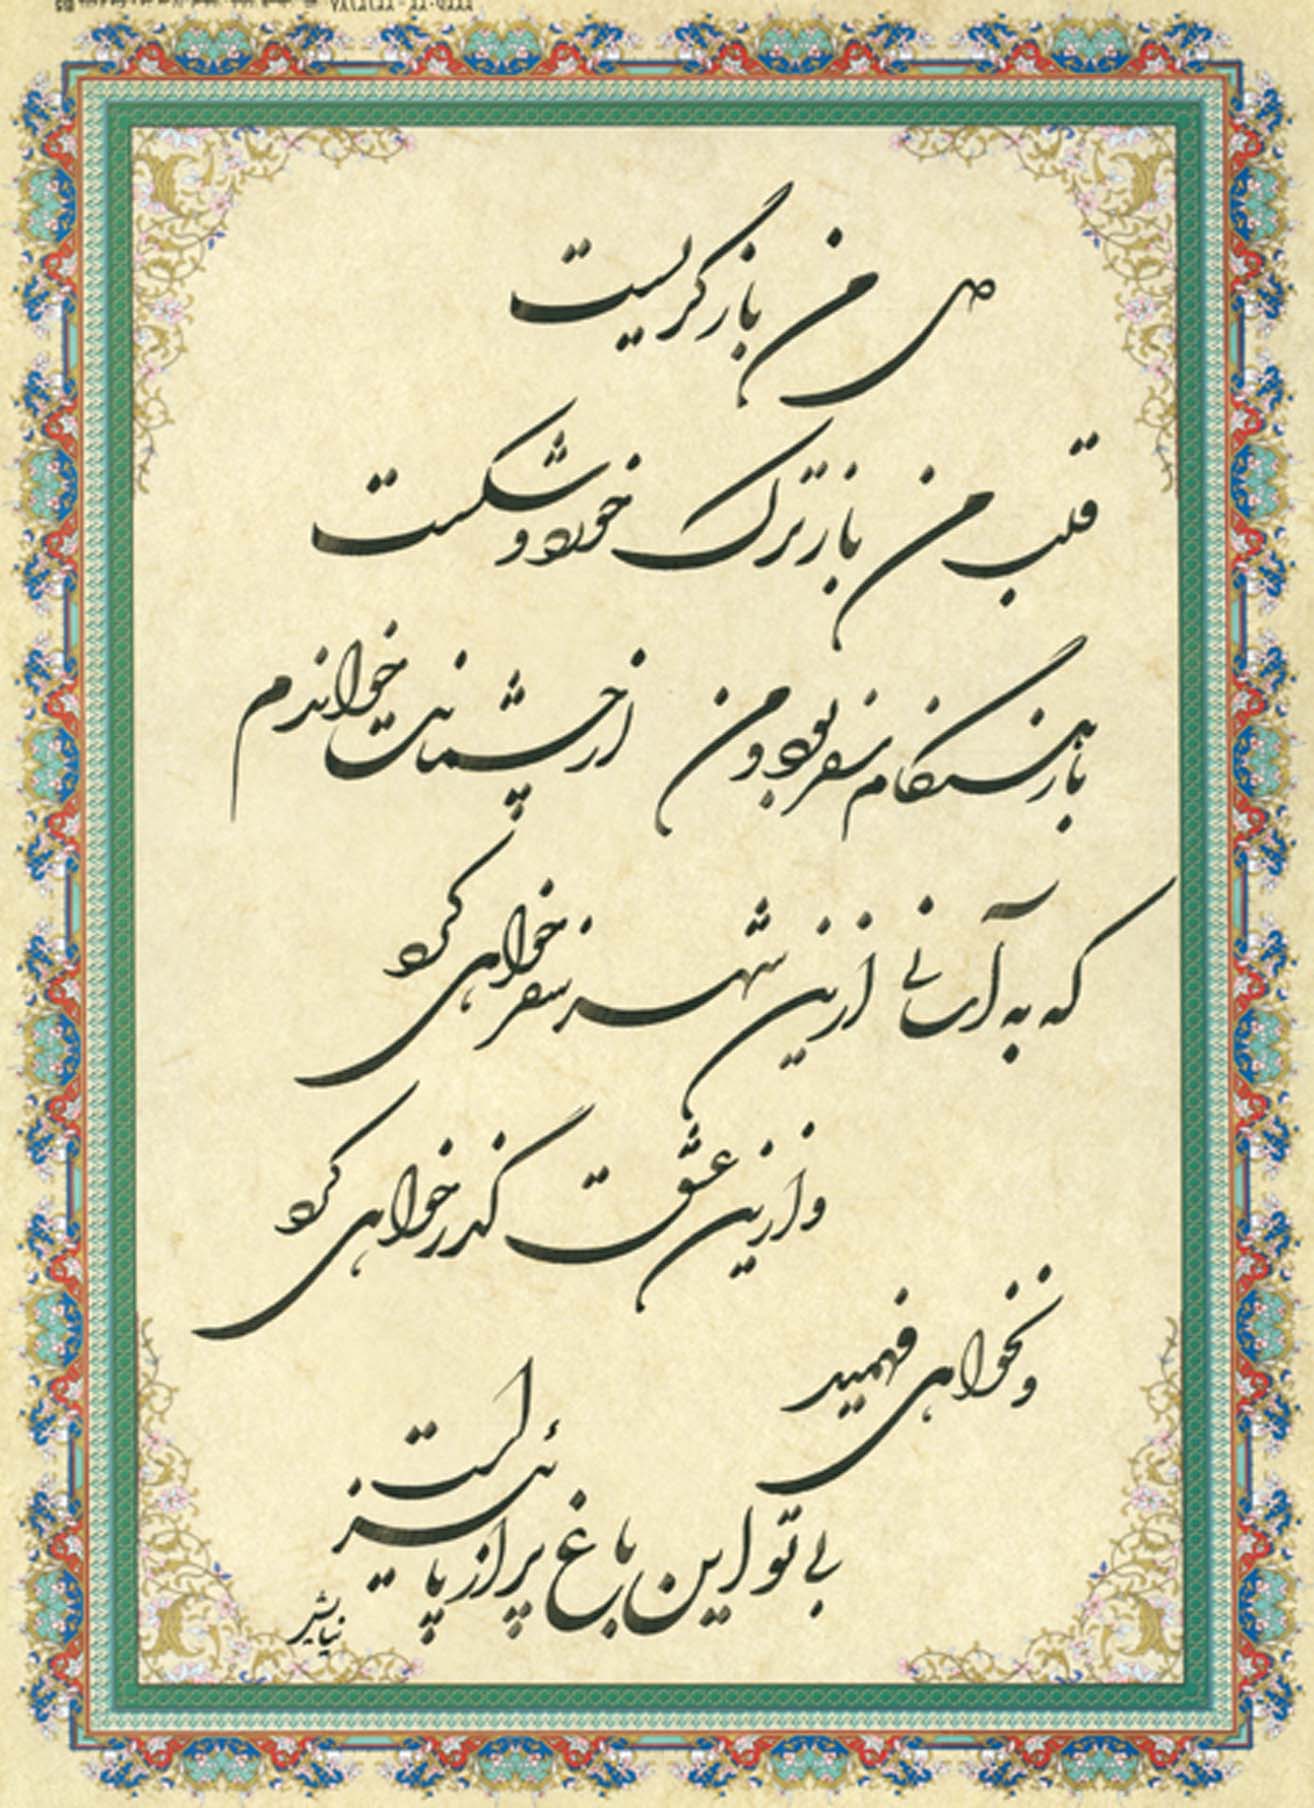 من باز گریست
قلب من باز ترک خورد و شکست
باز هنگام سفر بود و من از چشمانت می خواندم
که به آسانی ازین شهر سفر خواهی کرد
و ازین عشق گذر خواهی کرد
و نخواهی فهمید
بی تو این باغ پر از پائیز است
نیایش